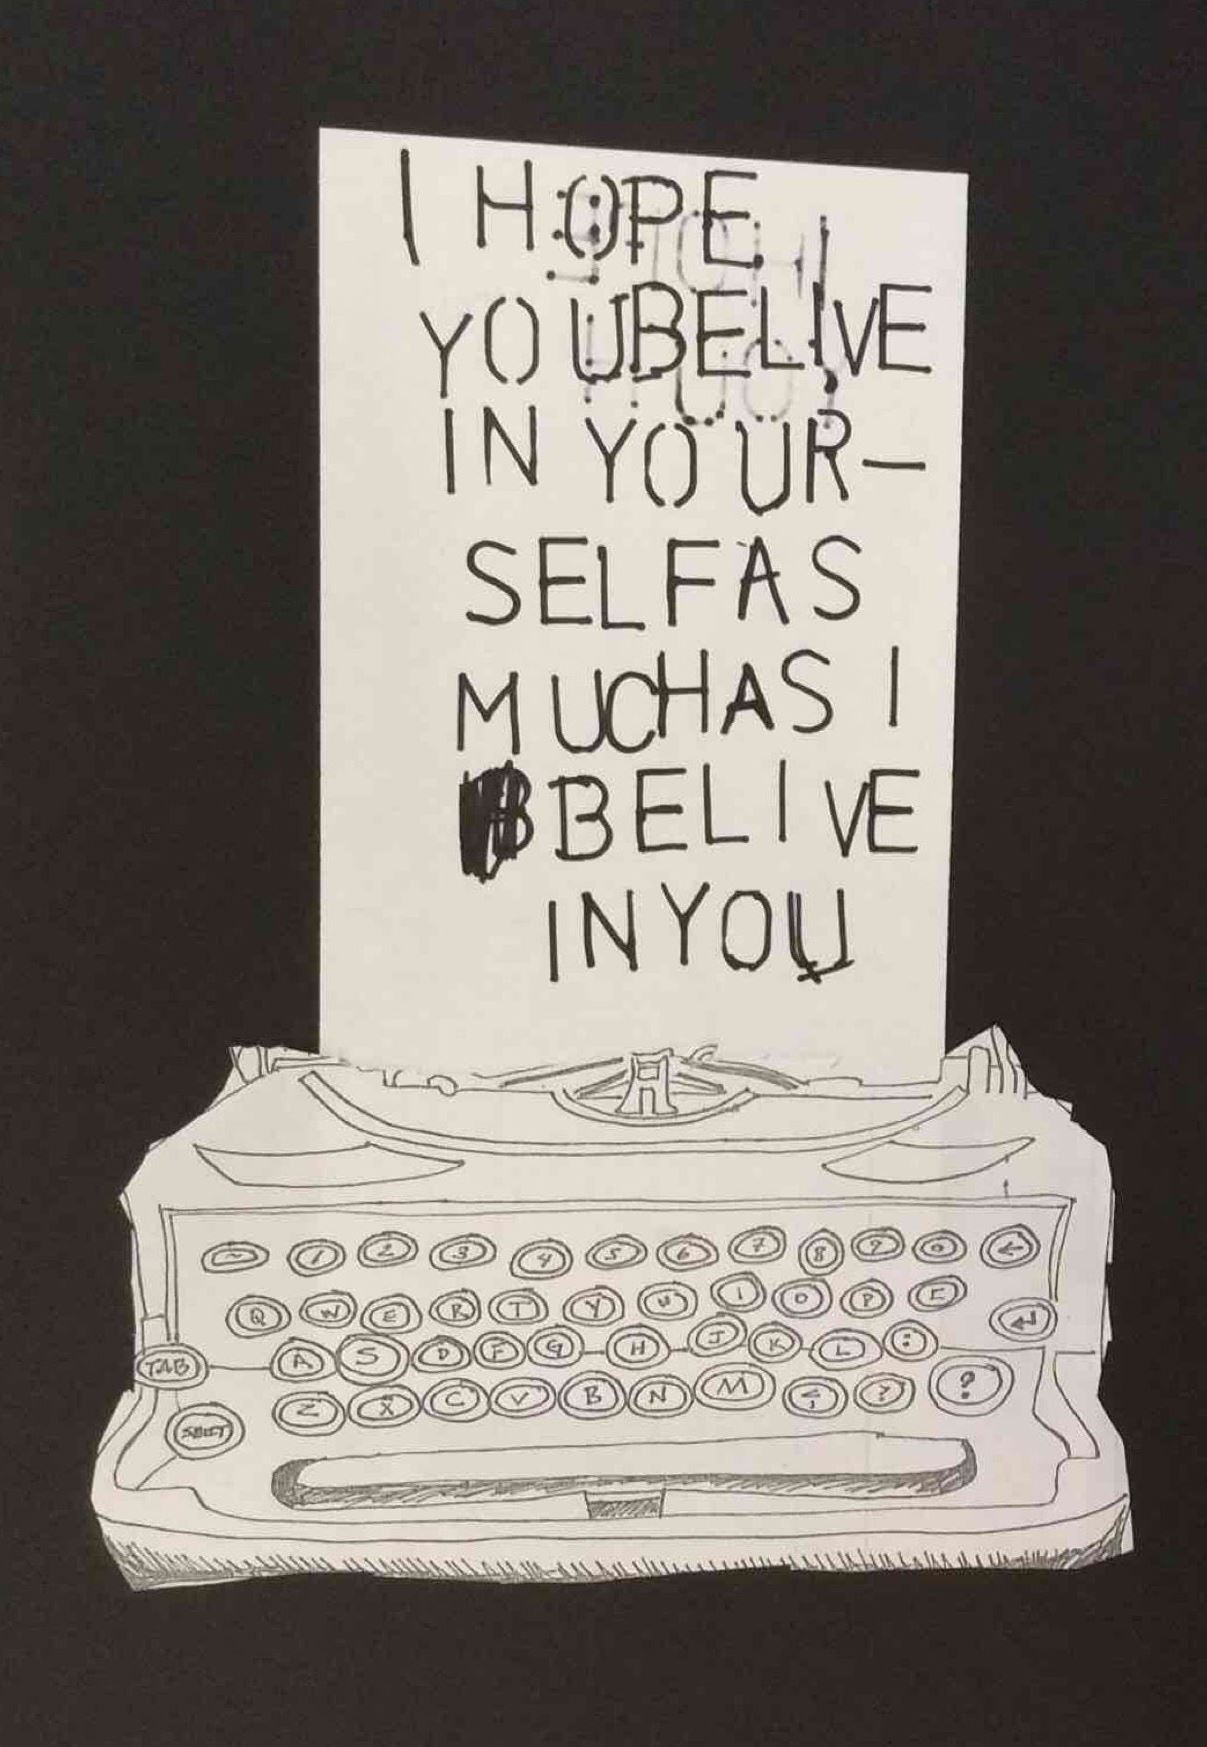 I HOPE
YOU BELIVE
IN YOUR-
SELF AS
MUCH AS I
BELIVE
IN YOU
~ 1 2 3 4 5 6 7 8 9 0 ←
Q W E R T Y U I O P
TAB A S D F G H J K L :
Z X C V B N M ? ?